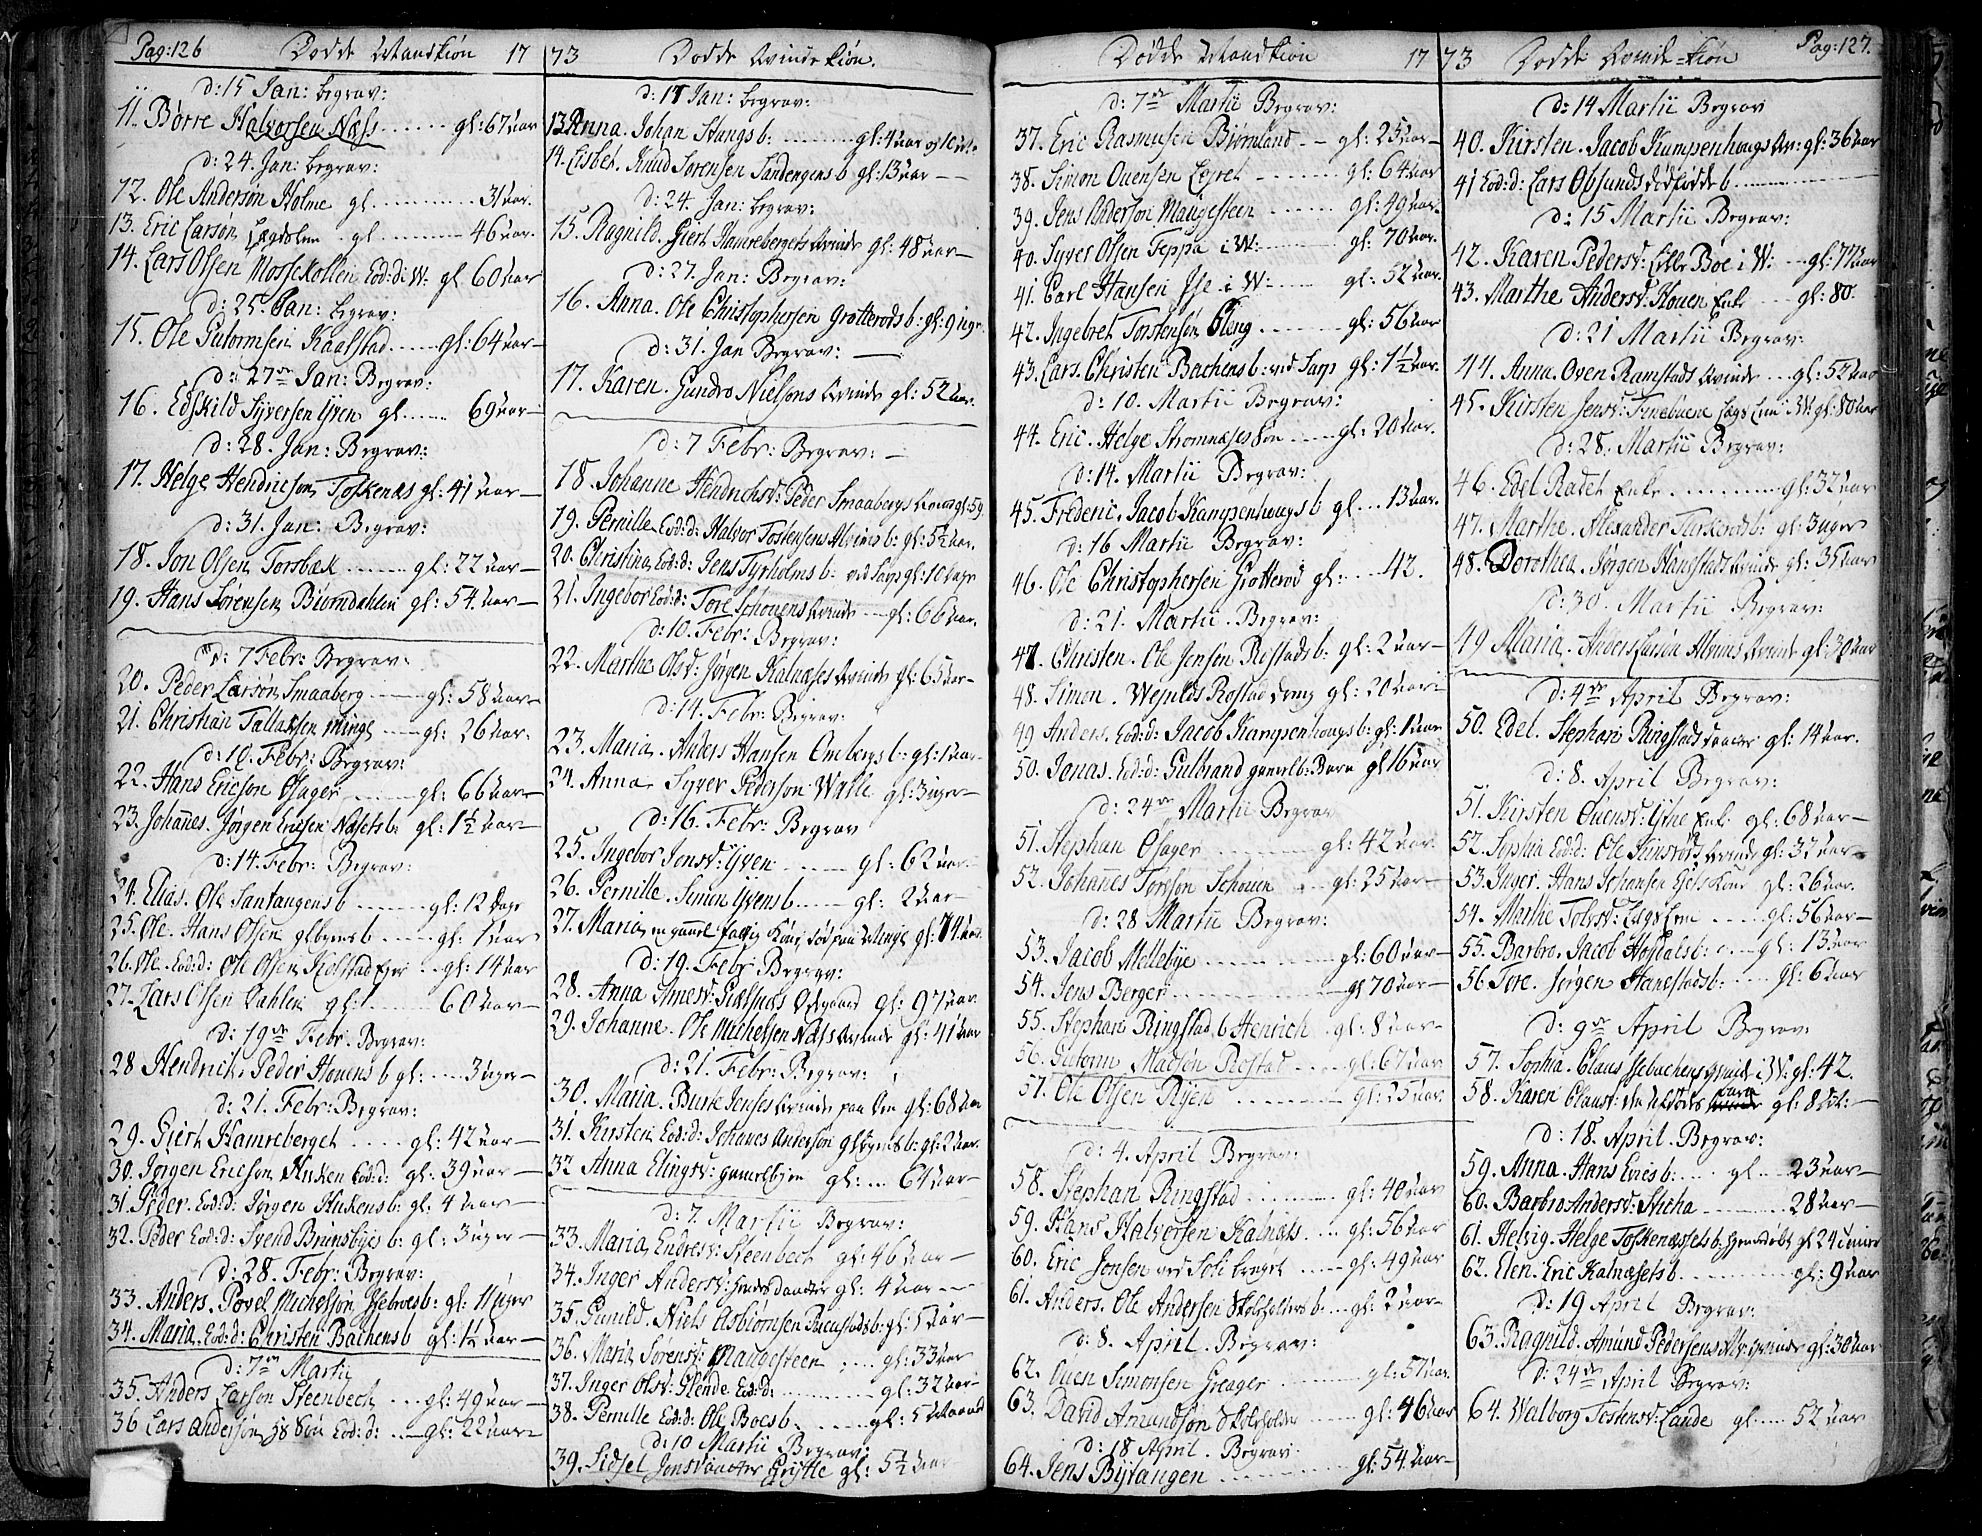 Pag: 126 Dødde Mandkiøn 17
d: 15 Jan: begrav:
11. Børre Halvorsen Næss gl: 67 aar
d: 24. Jan: begrav:
12. Ole Andersøn Holme gl. 31 aar.
13. Eric Larsøn Lægdslem gl. 46 aar.
14. Lars Olsen Mossekollen Eod: d: W: gl 60 aar
d: 25. Jan: begrav:
15. Ole Gutormsen Kaalstad gl: 64 aar
d: 27de Jan: Begrav:
16. Edskild Syversen Yven gl. 69 aar
d: 28. Jan: Begrav:
17. Helge Hendricsøn Toskenæs gl: 41 aar
d: 31. Jan: Begrav:
18. Jon Olsen Torsbæk gl: 22 aar
19. Hans Sørensen Biørndahlen gl: 54. aar
d: 7 Febr: Begrav:
20. Peder Larsøn Smaaberg gl: 58 aar
21. Christian Tallaksen Minge gl: 26 aar.
d: 10. Febr: Begrav:
22. Hans Ericsøn Ofager gl: 66 aar
23. Johannes. Jørgen Ericsen Næsets b: gl: 1½ aar
d: 14. Febr: Begrav:
24. Elias. Ole Santangens b gl: 12 dage
25. Ole. Hans Olsen glbyens b gl: 1 aar
26. Ole. Eod: d: Ole Olsen Kolstad Ejer gl: 14 aar
27. Lars Olsen Dahlen gl: 60 aar
d: 19de Febr. Begrav:
28 Hendrich. Peder Houens b gl: 3 uger
d: 21. Febr: Begrav:
29. Giert Hamreberget gl: 42 aar
30. Jørgen Ericsøn Huken Eod: d: gl: 39 aar
31. Peder. Eod: d: Jørgen Hukens b: gl: 4 aar
32. Peder Eod: d: Svend Brunsbyes b: gl: 3 uger
d: 28. Febr: Begrav:
33. Anders. Povel Michelsøn b: gl: 11 uger
34. Maria. Eod: d: Christen Bachens b gl: 1½ aar
d: 7de Martii
35. Anders Larsøn Steenbech gl: 49 aar
36 Lars Andersøn Søn Eod: d: gl: 22 aar
73 Dødde Qvindekiøn.
d: 17 Jan: begrav:
13. Anna. Johan Stangs b: gl: 4 aar og 10 uk.
14. Lisbet. Knud Sørensen Sandengens b gl: 13 aar
d: 24. Jan: begrav:
15. Ragnild. Giert Hamrebergets Qvinde gl: 48 aar
d: 27. Jan: Begrav:
16. Anna. Ole Christophersen Grøtterøds b: gl: 9 uger.
d: 31. Jan Begrav:
17. Karen. Gundro Nielsøns Qvinde gl: 52 aar.
d: 7 Febr: Begrav:
18. Johanne Hendrichsd: Peder Smaabergs Qvinde gl: 59.
19. Pernille Eod: d: Halvor Tostensens Alvims b: gl: 5½ aar.
20. Christina Eod: d: Jens Tyrholms b: ved Sarp gl: 10 dage
21. Ingebor Eod: d: Tore Schouens Qvinde gl: 66 aar.
d: 10. Febr: Begrav:
22. Marthe Olsd: Jørgen Kalnæses Qvinde gl: 65 aar
d: 14. Febr: Begrav:
23. Maria. Anders Hansen Ombergs b: gl: 1 aar
24. Anna Syver Pedersøn Walle gl: 3 uger
d: 16. Febr: Begrav
25. Ingebor Jensd: Yven gl: 62 aar
26. Pernille. Simen Yvens b gl: 2 aar
27. Maria en gammel fattig Kone død paa Minge gl: 74 aar.
d: 19. Febr Begrav:
28. Anna Arnesd: Odgaard gl: 97 aar.
29. Johanne. Ole Michelsen Næss Qvinde gl: 41 aar
d: 21. Febr: Begrav:
30. Maria. Burre Jenses Qvinde paa Øen gl: 68 aar
31. Kirsten. Eod: d: Johanes Andersøn glbyens b: gl: 2 aar.
32 Anna Elingsd: gamelbyen gl: 64 aar
d: 7. Martii Begrav:
33. Maria Endresd: Steenbech gl: 46 aar
34. Inger Andersd: gl: 4 aar
35. Gunild. Niels Asbiørnsen b: gl: 5 aar
36. Maria Sørensd: Maugesteen gl: 33 aar
37. Inger Olsd: Glende Eod: d: gl: 32 aar
38. Pernille Eod: d: Ole Boes b. gl: 5 Maaned
d: 10 Martii Begrav:
39. Sidsel Jonsdaatter gl: 5½ aar
Dødde Mandkiøn 17
d: 7de Martii Begrav:
37. Eric Rasmusen Biørnland gl: 25 aar
38. Simon Ouensen Lejret gl: 64 aar
39. Jens Andersøn Maugesteen gl: 49 aar.
40. Syver Olsen Teppa i W: gl: 70 aar.
41. Carl Hansen Ise i W: gl: 52 aar.
42. Ingebret Torstensøn Eleng gl: 56 aar
43. Lars. Christen Bachens b: ved Sarp gl: 1½ aar.
d: 10. Martii Begrav:
44. Eric. Helge Strømnæses Søn gl: 20 aar.
d: 14. Martii Begrav:
45. Frederic. Jacob Kampenhougs b gl: 13 aar.
d: 16 Martii Begrav:
46. Ole Christophersen Grøtterød gl: 42.
d: 21. Martii. Begrav:
47. Christen. Ole Jensøn Rostads b: gl: 2 aar
48. Simon. Wejnles Rostad dreng gl: 20 aar
49 Anders. Eod: d: Jacob Kampenhougs b: gl: 1 aar
50. Jonas. Eod: d: Gulbrand gamelb: Barn gl 16 aar
d: 24de Martii Begrav
51. Stephan Ofager gl: 42 aar
52. Johannes Torssøn Schouen gl: 25 aar
d: 28 Martii Begrav:
53. Jacob Mellebye gl: 60 aar
54. Jens Berger gl 70 aar
55. Stephan Ringstad b Henrich gl: 8 aar
56. Gutorm Madsøn Rostad gl: 67 aar
57. Ole Olsen Ryen gl: 25 aar
d: 4. April Begrav:
58. Stephan Ringstad gl: 40 aar
59. Hans Halvorsen Kalnæs gl: 56 aar
60. Eric Jonsen ved Soli bruget gl: 49 aar
61. Anders. Ole Andersen Skolholders b gl: 2 aar
d: 8. April. Begrav:
62. Ouen Simonsen Greager gl: 57 aar.
63. David Amundsøn Skolholder gl: 46 aar
d: 18 April. Begrav:
64. Jens Bystangen gl: 54. aar
73 Dødde Qvinde-kiøn Pag: 127.
d: 14 Martii Begrav
40. Kirsten. Jacob Kampenhougs Qv: gl: 36 aar
41 Eod: d: Lars Obsunds dødfødde b
d: 15 Martii Begrav:
42. Karen Pedersd: Lille Boe i W: gl: 77 aar
43. Marthe Andersd: Houen Enke gl: 80.
d: 21 Martii Begrav:
44. Anna. Oven Ramstads Qvinde gl: 52 aar
45. Kirsten Jensd: Lægs Lem i W: gl: 80 aar
d: 28. Martii Begrav:
46. Edel Radet Enke gl: 32 aar
47. Marthe. Alexander b: gl: 3 uger
48. Dorothea. Jørgen Hanestads Qvinde gl: 35 aar
d: 30. Martii Begrav:
49 Maria. Anders Larsøn Alvims Qvinde gl: 30 aar
d: 4de April Begrav:
50. Edel. Stephan Ringstads daater gl: 14 aar.
d: 8. April Begrav:
51. Kirsten Ouensd: Ythe Enke gl: 68 aar
52. Sophia Eod: d: Ole Qvinde gl: 32 aar
53. Inger. Hans Johansen Kone gl: 26 aar.
54. Marthe Tolvsd: Lægslem gl: 56 aar
55. Barbro. Jacob b: gl: 13 aar
56. Tore. Jørgen Hanestads b: gl: 6 aar
d: 9de April Begrav:
57. Sophia. Claus Isebachens Qvinde i W: gl: 42.
58. Karen Clausd: barn gl: 8 uk:
d: 18. April. Begrav:
59. Anna. Hans Evies b: gl. 23 aar
60. Barbro Andersd: Sticha 28 aar
61. Helvig. Helge Toskenæssets b: hjemdøbt gl 24 timer
62. Elen. Eric Kalnæsets b gl: 9 aar
d: 19 April Begrav:
63. Ragnild. Amund Pedersens Alv: Qvinde gl: 30 aar
d: 24de April Begrav:
64. Walborg Tostensd: Lande gl: 52 aar